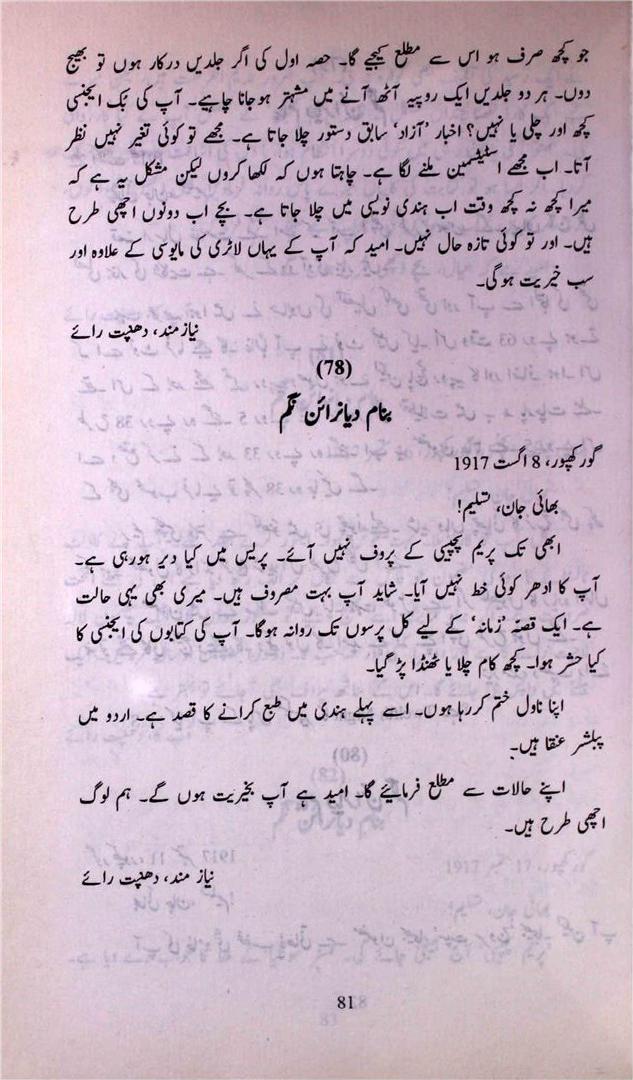 جو کچھ صرف ہو اس سے مطلع کیجیے گا۔ حصہ اول کی اگر جلدیں درکار ہوں تو بھیج
دوں۔ ہر دو جلدیں ایک روپیہ آٹھ آنے میں مشتہر ہوجانا چاہیے۔ آپ کی بُک ایجنسی
کچھ اور چلی یا نہیں؟ اخبار ’آزاد‘ سابق دستور چلا جاتا ہے۔ مجھے تو کوئی تغیر نہیں نظر
آتا۔ اب مجھے اسٹیٹسمین ملنے لگا ہے۔ چاہتا ہوں کہ لکھا کروں لیکن مشکل یہ ہے کہ
میرا کچھ نہ کچھ وقت اب ہندی نویسی میں چلا جاتا ہے۔ بچے اب دونوں اچھی طرح
ہیں۔ اور تو کوئی تازہ حال نہیں۔ امید کہ آپ کے یہاں لاٹری کی مایوسی کے علاوہ اور
سب خیریت ہوگی۔
نیاز مند، دھنپت رائے
(78)
بنام دیانرائن نگم
گورکھپور، 8 اگست 1917
بھائی جان، تسلیم!
ابھی تک پریم پچیسی کے پروف نہیں آئے۔ پریس میں کیا دیر ہورہی ہے۔
آپ کا ادھر کوئی خط نہیں آیا۔ شاید آپ بہت مصروف ہیں۔ میری بھی یہی حالت
ہے۔ ایک قصّہ ’زمانہ‘ کے لیے کل پرسوں تک روانہ ہوگا۔ آپ کی کتابوں کی ایجنسی کا
کیا حشر ہوا۔ کچھ کام چلا یا ٹھنڈا پڑ گیا۔
اپنا ناول ختم کررہا ہوں۔ اسے پہلے ہندی میں طبع کرانے کا قصد ہے۔ اردو میں
پبلشر عنقا ہیں۔
اپنے حالات سے مطلع فرمائیے گا۔ امید ہے آپ بخیریت ہوں گے۔ ہم لوگ
اچھی طرح ہیں۔
نیاز مند، دھنپت رائے
81